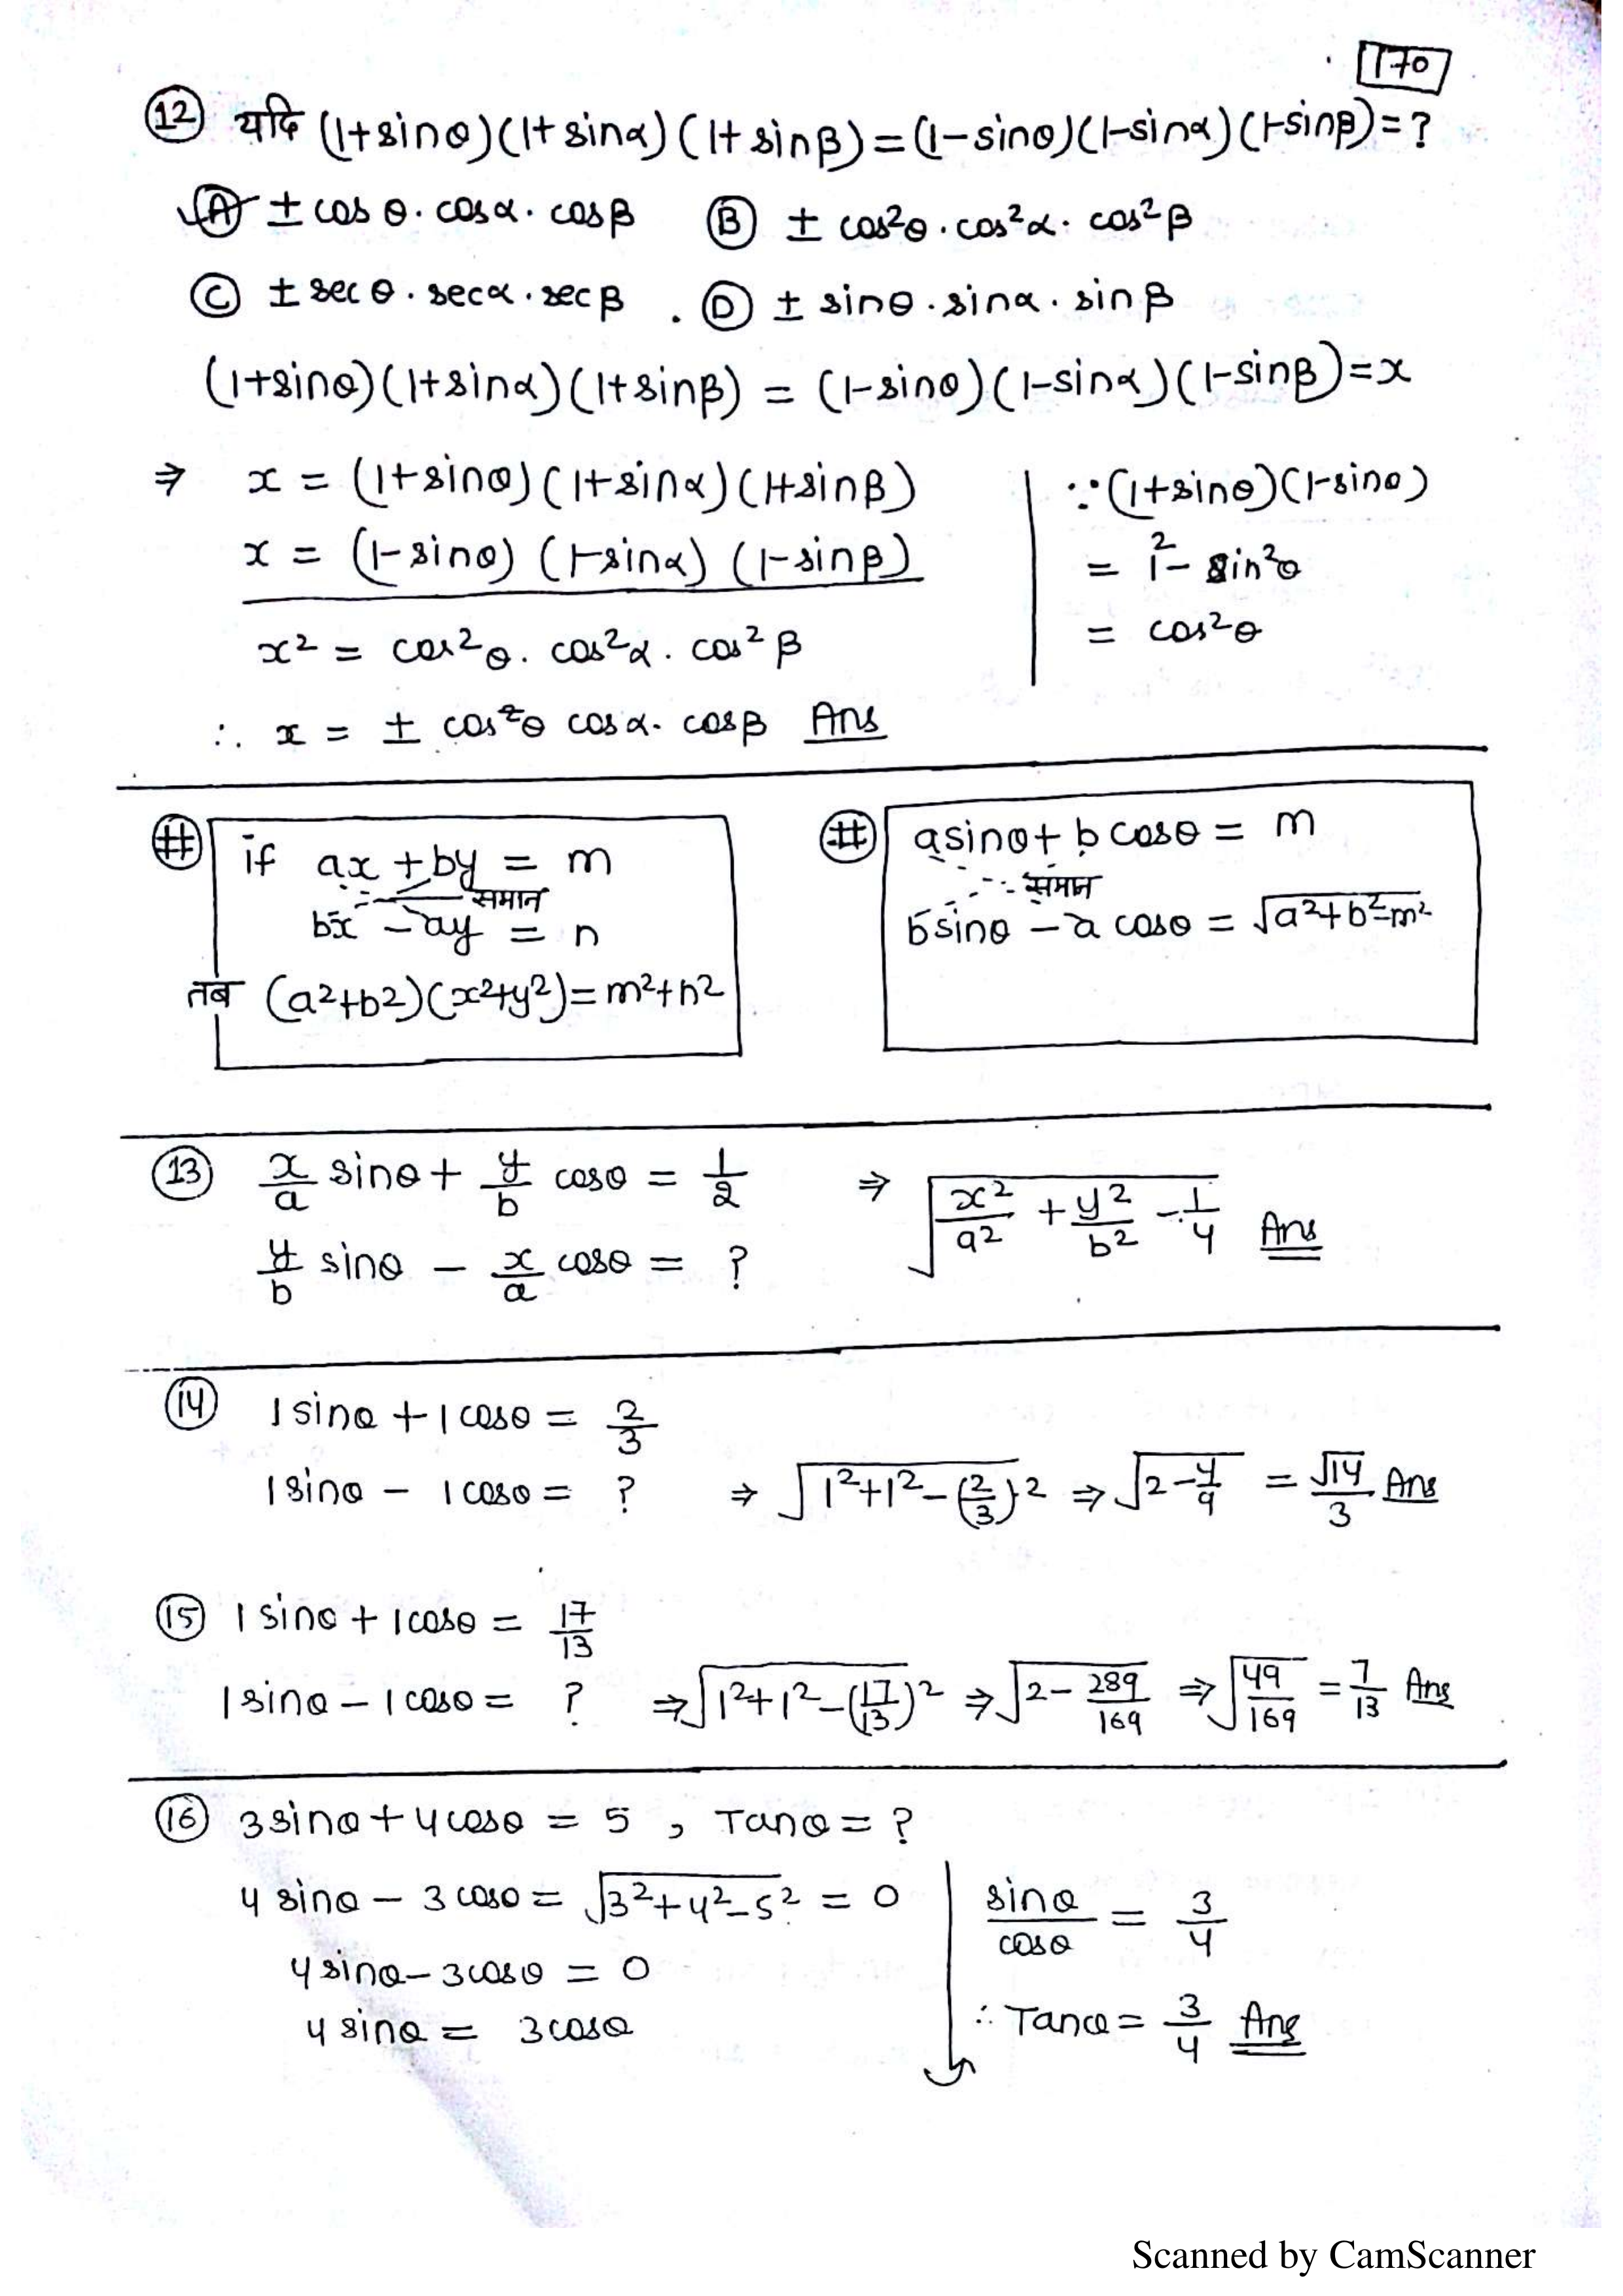 170
(12) यदि (1+sinθ)(1+sinα)(1+sinβ)=(1-sinθ)(1-sinα)(1-sinβ)=?
(A) ± cosθ·cosα·cosβ (B) ± cos²θ·cos²α·cos²β
(C) ± secθ·secα·secβ . (D) ± sinθ·sinα·sinβ
(1+sinθ)(1+sinα)(1+sinβ) = (1-sinθ)(1-sinα)(1-sinβ)=x
⇒ x = (1+sinθ)(1+sinα)(1+sinβ) ∵(1+sinθ)(1-sinθ)
x = (1-sinθ)(1-sinα)(1-sinβ) = 1²- sin²θ
x² = cos²θ. cos²α. cos²β = cos²θ
∴ x = ± cosθ cosα. cosβ Ans
(#) if ax + by = m
समान
bx - ay = n
तब (a²+b²)(x²+y²)=m²+n²
(#) asinθ + b cosθ = m
समान
bsinθ - a cosθ = √(a²+b²-m²)
(13) x/a sinθ + y/b cosθ = 1/2 ⇒ √(x²/a² + y²/b² - 1/4) Ans
y/b sinθ - x/a cosθ = ?
(14) 1sinθ + 1cosθ = 2/3
1sinθ - 1cosθ = ? ⇒ √(1²+1²-(2/3)²) ⇒ √(2-4/9) = √14/3 Ans
(15) 1sinθ + 1cosθ = 17/13
1sinθ - 1cosθ = ? ⇒ √(1²+1²-(17/13)²) ⇒ √(2-289/169) ⇒ √(49/169) = 7/13 Ans
(16) 3sinθ + 4cosθ = 5 , Tanθ = ?
4sinθ - 3cosθ = √(3²+4²-5²) = 0
4sinθ - 3cosθ = 0
4sinθ = 3cosθ
sinθ/cosθ = 3/4
∴ Tanθ = 3/4 Ans
Scanned by CamScanner